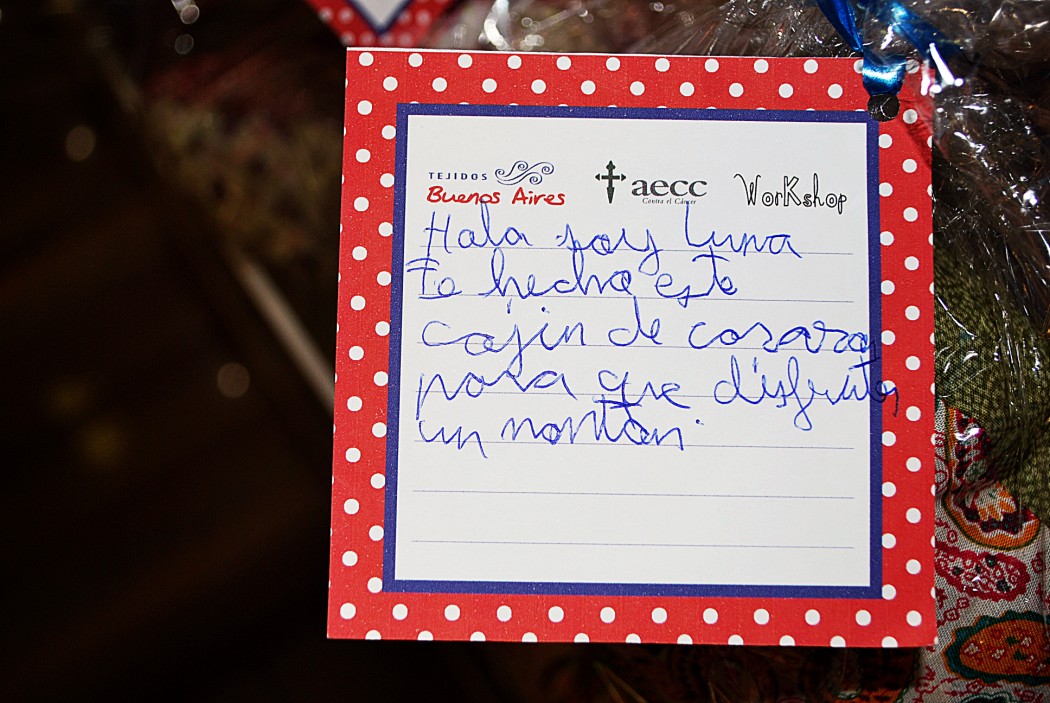 TEJIDOS
Buenos Aires
aecc
Contra el Cáncer
Workshop
Hola soy Luna
Te hecho este
cojin de corazon
para que disfrutes
un montón.